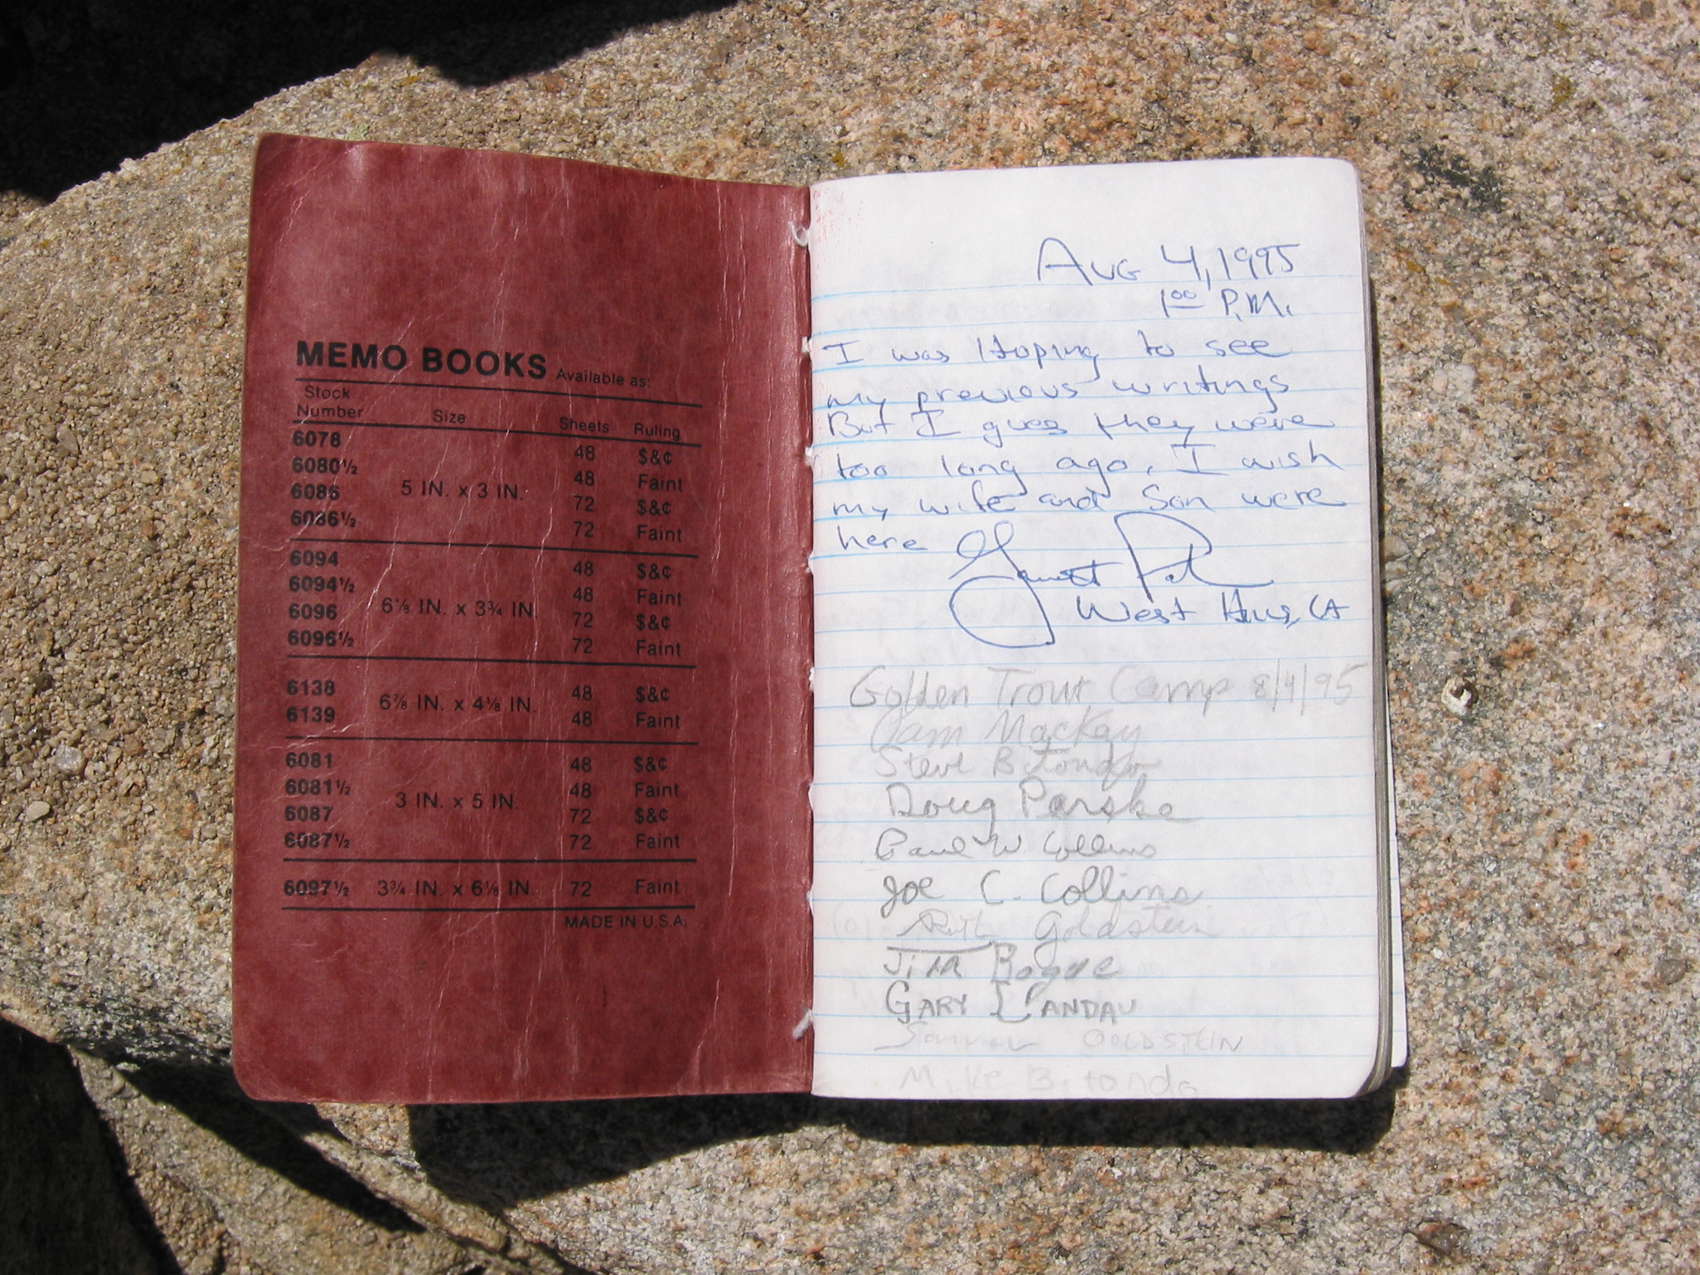 MEMO BOOKS Available as:
Stock
Number Size Sheets Ruling
6078 48 $&¢
6080½ 48 Faint
5 IN. x 3 IN.
6086 72 $&¢
6086½ 72 Faint
6094 48 $&¢
6094½ 48 Faint
6⅛ IN. x 3¾ IN
6096 72 $&¢
6096½ 72 Faint
6138 48 $&¢
6⅞ IN. x 4⅛ IN.
6139 48 Faint
6081 48 $&¢
6081½ 48 Faint
3 IN. x 5 IN.
6087 72 $&¢
6087½ 72 Faint
6097½ 3¾ IN. x 6⅛ IN. 72 Faint
MADE IN U.S.A.
Aug 4, 1995
1⁰⁰ P.M.
I was Hoping to see
my previous writings
But I guess they were
too long ago. I wish
my wife and Son were
here
West Hills, CA
Golden Trout Camp 8/4/95
Pam Mackay
Steve Bitondo
Doug Parske
Paul W Collins
Joe C. Collins
Ruth Goldstein
Jim Bogue
GARY LANDAU
GOLDSTEIN
Mike Bitondo